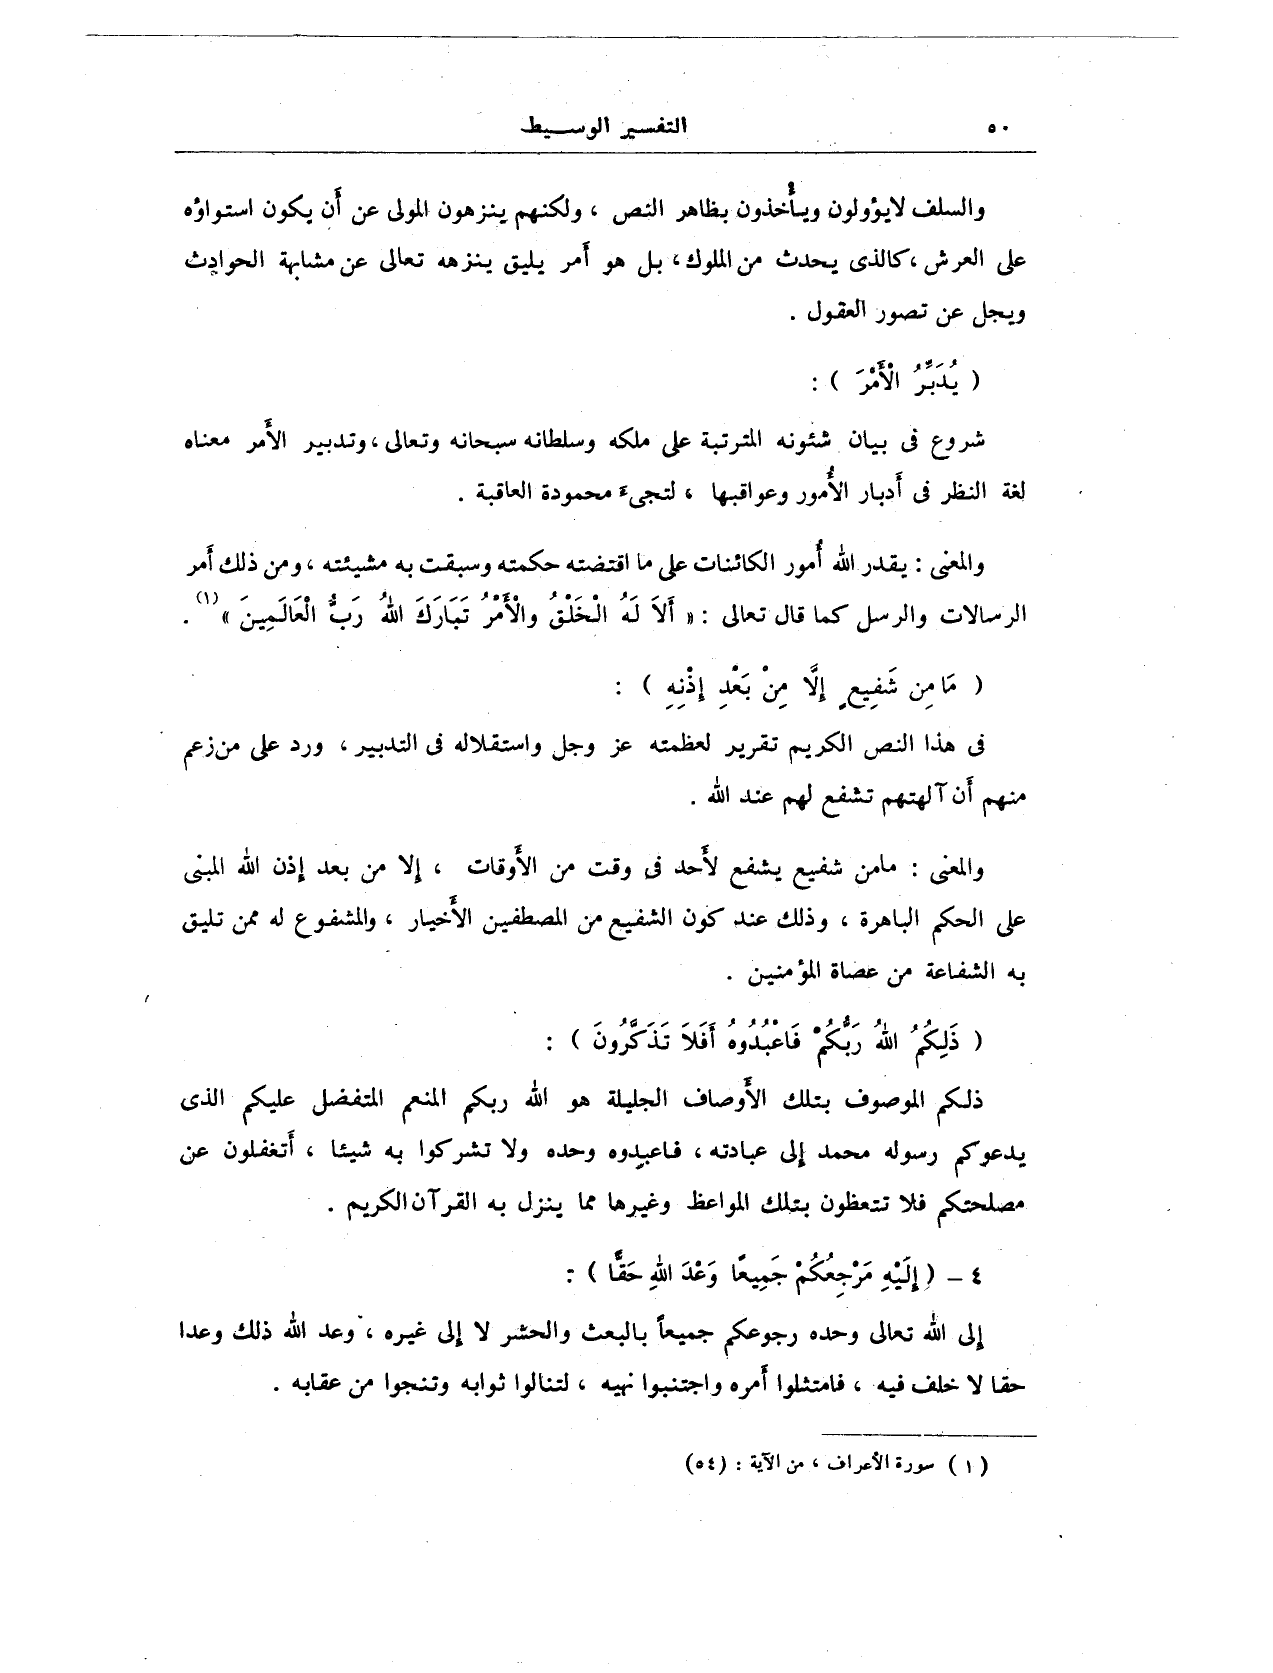 ٥٠
التفسير الوسيط
والسلف لايؤولون ويأخذون بظاهر النص ، ولكنهم ينزهون المولى عن أن يكون استواؤه
على العرش ، كالذى يحدث من الملوك ، بل هو أمر يليق بنزهه تعالى عن مشابهة الحوادث
ويجل عن تصور العقول .
( يُدَبِّرُ الْأَمْرَ ) :
شروع فى بيان شئونه المترتبة على ملكه وسلطانه سبحانه وتعالى ، وتدبير الأمر معناه
لغة النظر فى أدبار الأُمور وعواقبها ، لتجىء محمودة العاقبة .
والمعنى : يقدر الله أُمور الكائنات على ما اقتضته حكمته وسبقت به مشيئته ، ومن ذلك أمر
الرسالات والرسل كما قال تعالى : « أَلاَ لَهُ الْخَلْقُ والْأَمْرُ تَبَارَكَ اللهُ رَبُّ الْعَالَمِينَ »(١) .
( مَا مِن شَفِيعٍ إِلَّا مِنْ بَعْدِ إِذْنِهِ ) :
فى هذا النص الكريم تقرير لعظمته عز وجل واستقلاله فى التدبير ، ورد على من زعم
منهم أن آلهتهم تشفع لهم عند الله .
والمعنى : مامن شفيع يشفع لأحد فى وقت من الأوقات ، إلا من بعد إذن الله المبنى
على الحكم الباهرة ، وذلك عند كون الشفيع من المصطفين الأخيار ، والمشفوع له ممن تليق
به الشفاعة من عصاة المؤمنين .
( ذَلِكُمُ اللهُ رَبُّكُمْ فَاعْبُدُوهُ أَفَلاَ تَذَكَّرُونَ ) :
ذلكم الموصوف بتلك الأوصاف الجليلة هو الله ربكم المنعم المتفضل عليكم الذى
يدعوكم رسوله محمد إلى عبادته ، فاعبدوه وحده ولا تشركوا به شيئا ، أتغفلون عن
مصلحتكم فلا تتعظون بتلك المواعظ وغيرها مما ينزل به القرآن الكريم .
٤ – ( إِلَيْهِ مَرْجِعُكُمْ جَمِيعًا وَعْدَ اللهِ حَقًّا ) :
إلى الله تعالى وحده رجوعكم جميعاً بالبعث والحشر لا إلى غيره ، وعد الله ذلك وعدا
حقا لا خلف فيه ، فامتثلوا أمره واجتنبوا نهيه ، لتنالوا ثوابه وتنجوا من عقابه .
(١) سورة الأعراف ، من الآية : (٥٤)